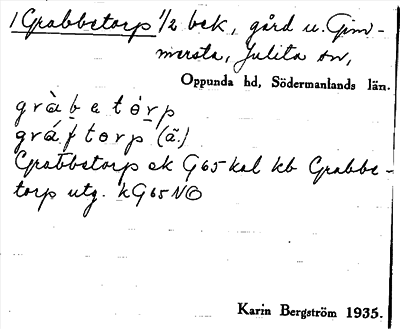 1 Grabbetorp 1/2 bek, gård u. Gim-
mersta, Julita sn,
Oppunda hd, Södermanlands län.
gràbetòrp
gráftorp (ã.)
Grabbetorp ek G65 kal kb Grabbe-
torp utg. kG65NO
Karin Bergström 1935.